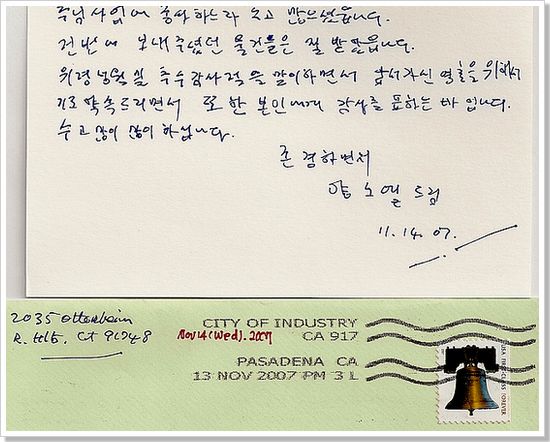 주님 사업에 종사하느라 수고 많으셨습니다.
전번에 보내주셨던 물건들은 잘 받았읍니다.
위령성월 및 추수감사절을 맞이하면서 앞서가신 영혼을 위해서
기도 약속드리면서 또한 본인에게 감사를 표하는 바입니다.
수고많이 많이 하십니다.
존경하면서
노엘 드림
11. 14. 07.
2035
R. Hts. 91748
Nov 14 (Wed). 2007
CITY OF INDUSTRY
CA 917
PASADENA CA
13 NOV 2007 PM 3 L
USA FIRST-CLASS FOREVER